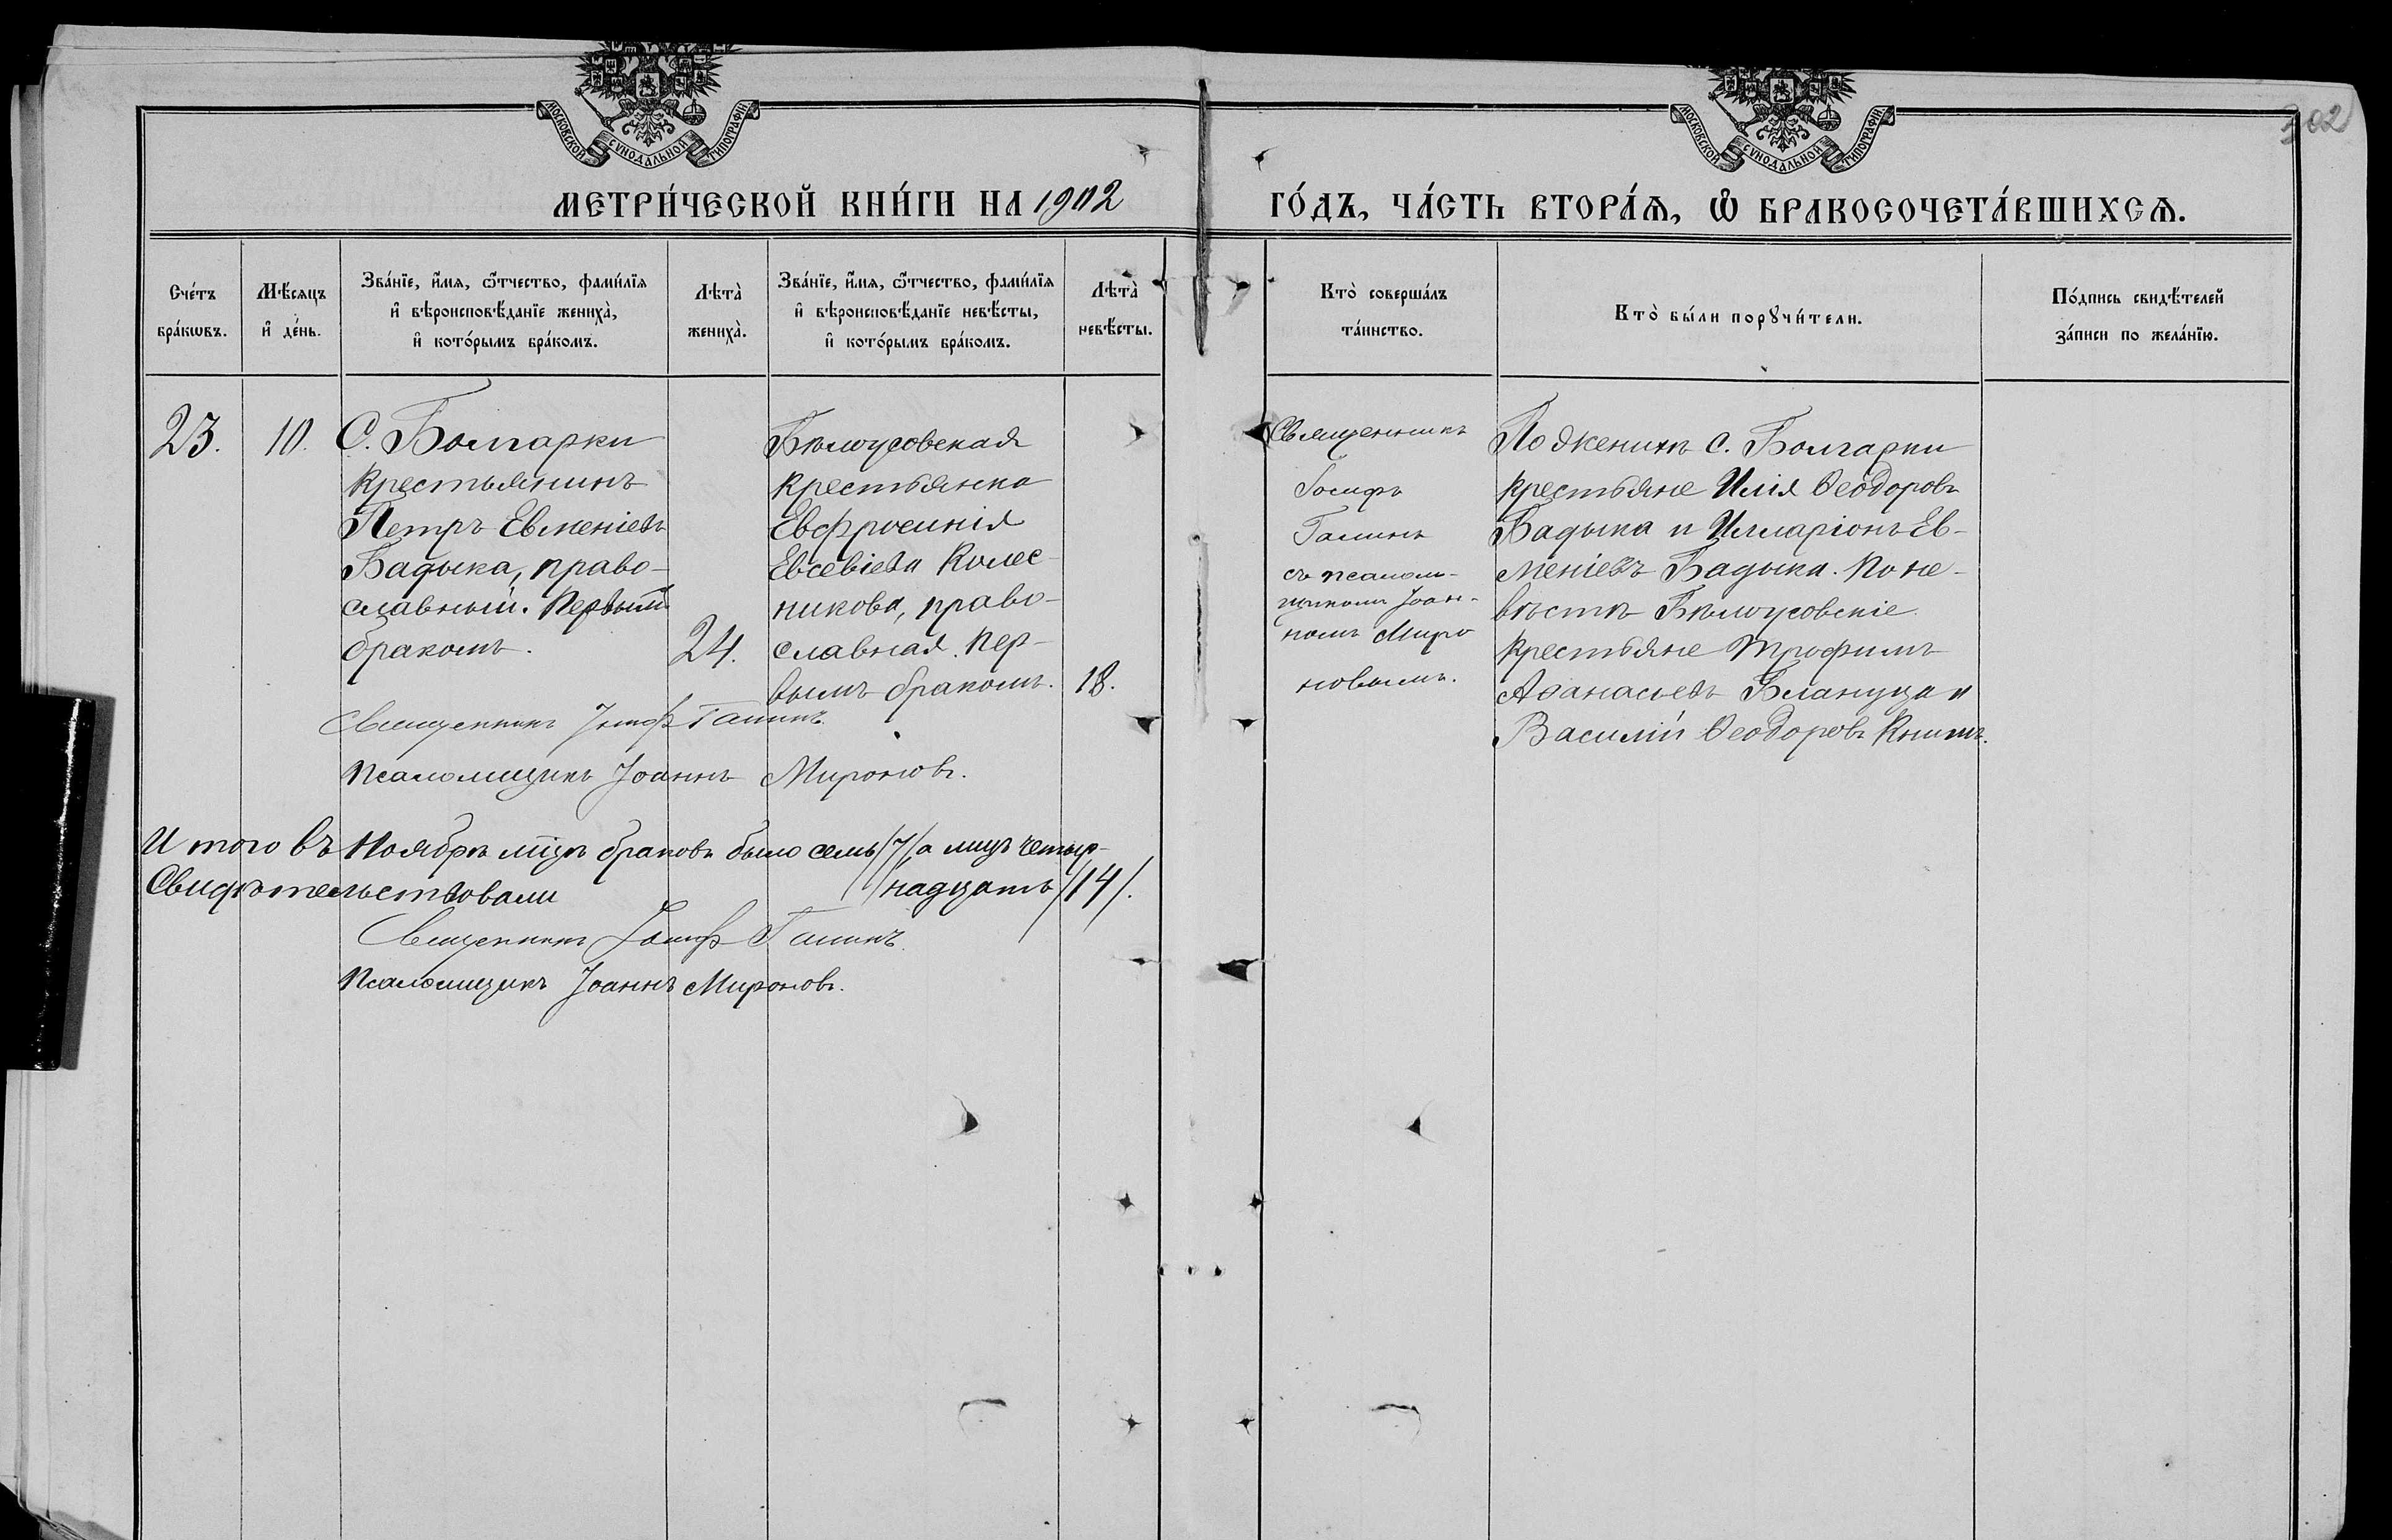 МОСКОВСКОЙ СѴНОДАЛЬНОЙ ТИПОГРАФІИ
МОСКОВСКОЙ СѴНОДАЛЬНОЙ ТИПОГРАФІИ
302
МЕТРИ́ЧЕСКОЙ КНИ́ГИ НА 1902 ГО́ДЪ, ЧА́СТЬ ВТОРА́Я, Ѽ БРАКОСОЧЕТА́ВШИХСЯ.
Сче́тъ
бра́кѡвъ.
Мѣ́сяцъ
и҆ де́нь.
Зва́нїе, и҆́мя, ѻ҆́тчество, фами́лїя
и҆ вѣроисповѣ́данїе жениха̀,
и҆ кото́рымъ бра́комъ.
Лѣта̀
жениха̀.
Зва́нїе, и҆́мя, ѻ҆́тчество, фами́лїя
и҆ вѣроисповѣ́данїе невѣ́сты,
и҆ кото́рымъ бра́комъ.
Лѣта̀
невѣ́сты.
Кто̀ соверша́лъ
та́инство.
Кто̀ бы́ли порꙋчи́тели.
По́дпись свидѣ́телей
за́писи по жела́нїю.
23.
10.
С. Болгарки
крестьянинъ
Петръ Евменіевъ
Бадыка, право-
славный. Первымъ
бракомъ.
24.
Бѣлоусовская
крестьянка
Евфросинія
Евсевіева Колес-
никова, право-
славная. Пер-
вымъ бракомъ.
18.
Священникъ
Іосифъ
Галинъ
съ псалом-
щикомъ Іоан-
номъ Миро
новымъ.
По женихѣ с. Болгарки
крестьяне Илія Ѳеодоровъ
Бадыка и Илларіонъ Ев-
меніевъ Бадыка. По не-
вѣстѣ Бѣлоусовскіе
крестьяне Трофимъ
Аѳанасьевъ Блануца и
Василій Ѳеодоровъ Книшъ.
Священникъ Іосифъ Галинъ.
Псаломщикъ Іоаннъ Мироновъ.
И того въ Ноябрѣ мцѣ браковъ было семь /7/ а лицъ четыр-
надцать /14/.
Свидѣтельствовали
Священникъ Іосифъ Галинъ.
Псаломщикъ Іоаннъ Мироновъ.